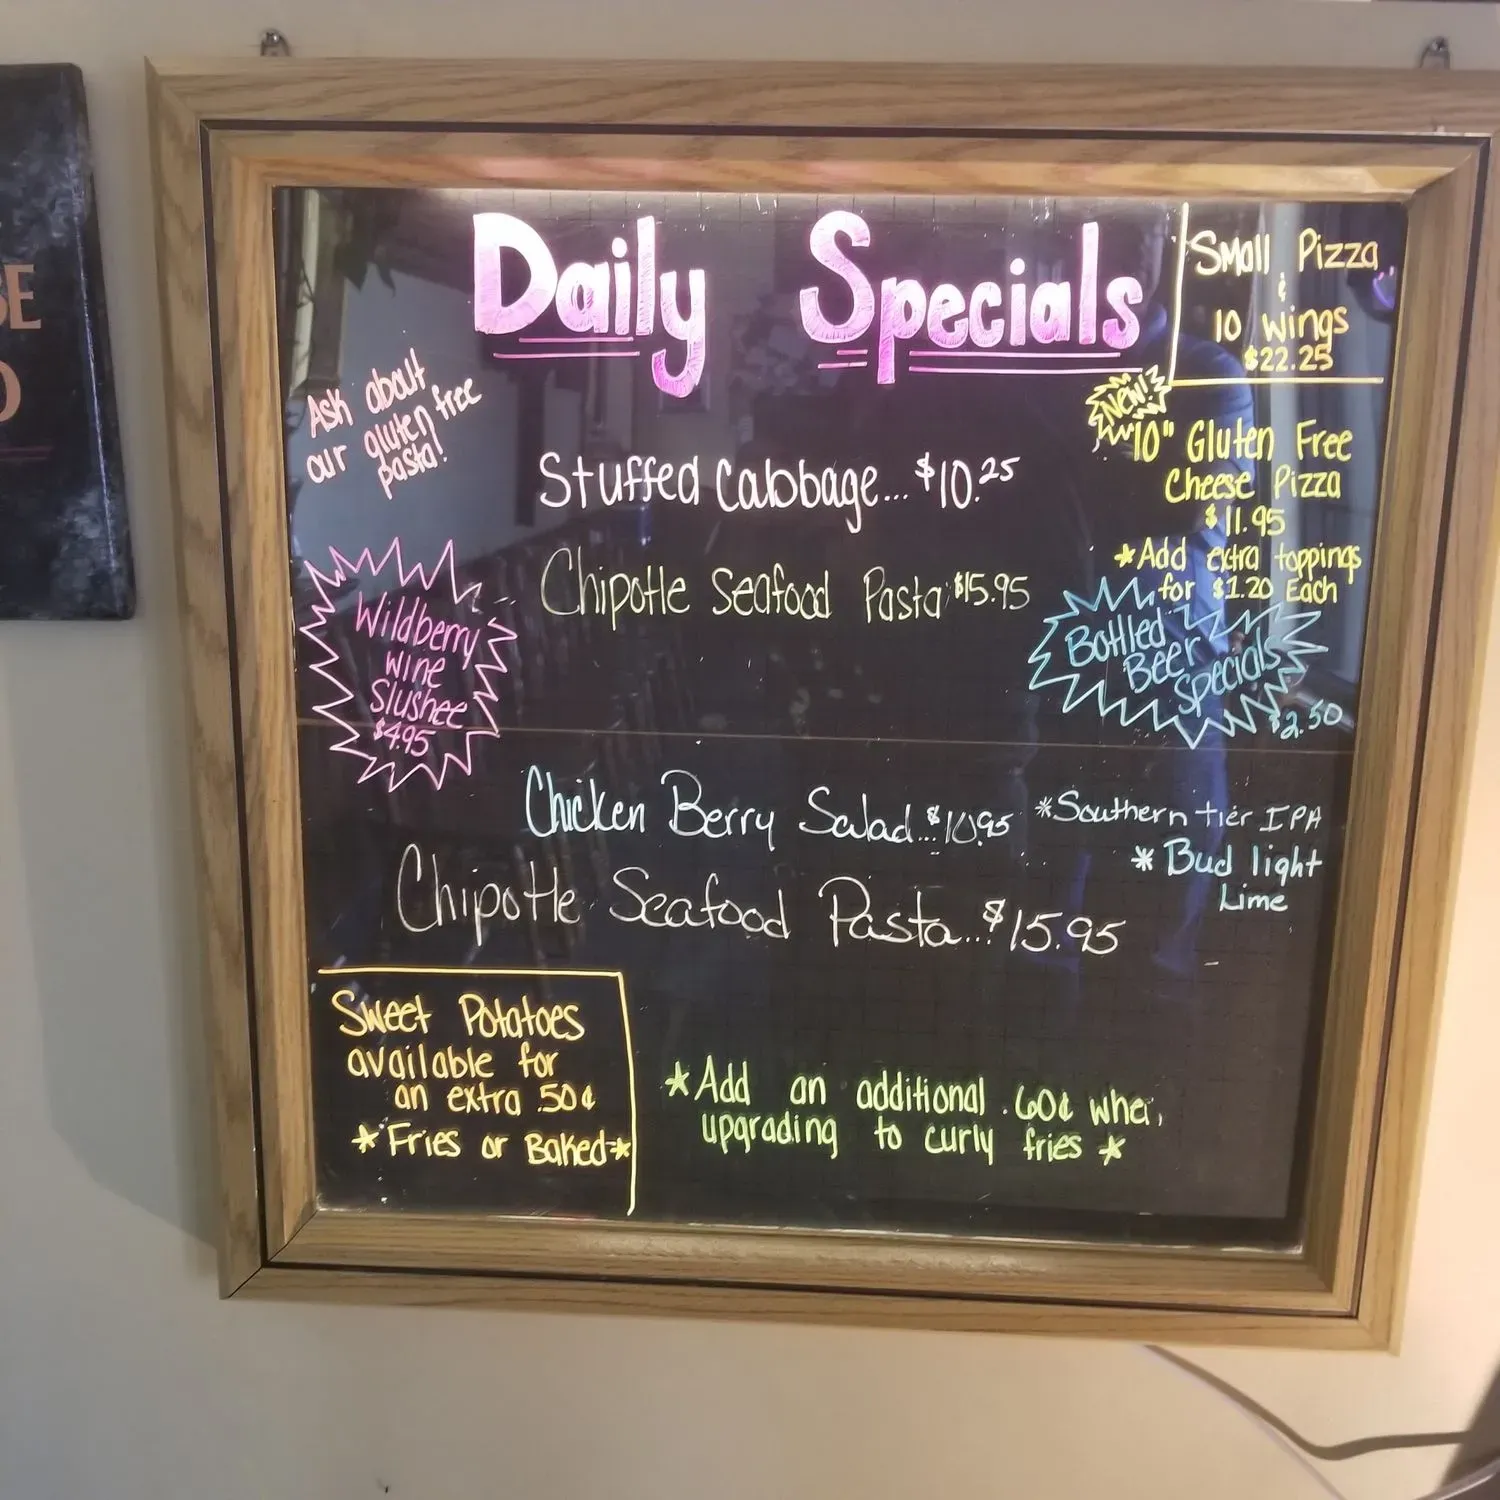 Daily Specials
Small Pizza
&
10 Wings
$22.25
Ask about
our gluten free
pasta!
New!
10" Gluten Free
Cheese Pizza
$11.95
*Add extra toppings
for $1.20 Each
Stuffed Cabbage... $10.25
Chipotle Seafood Pasta $15.95
Wildberry
Wine
Slushee
$4.95
Bottled
Beer
Specials
$2.50
Chicken Berry Salad...$10.95
*Southern Tier IPA
* Bud light
Lime
Chipotle Seafood Pasta...$15.95
Sweet Potatoes
available for
an extra .50¢
*Fries or Baked*
*Add an additional .60¢ whe
upgrading to curly fries *